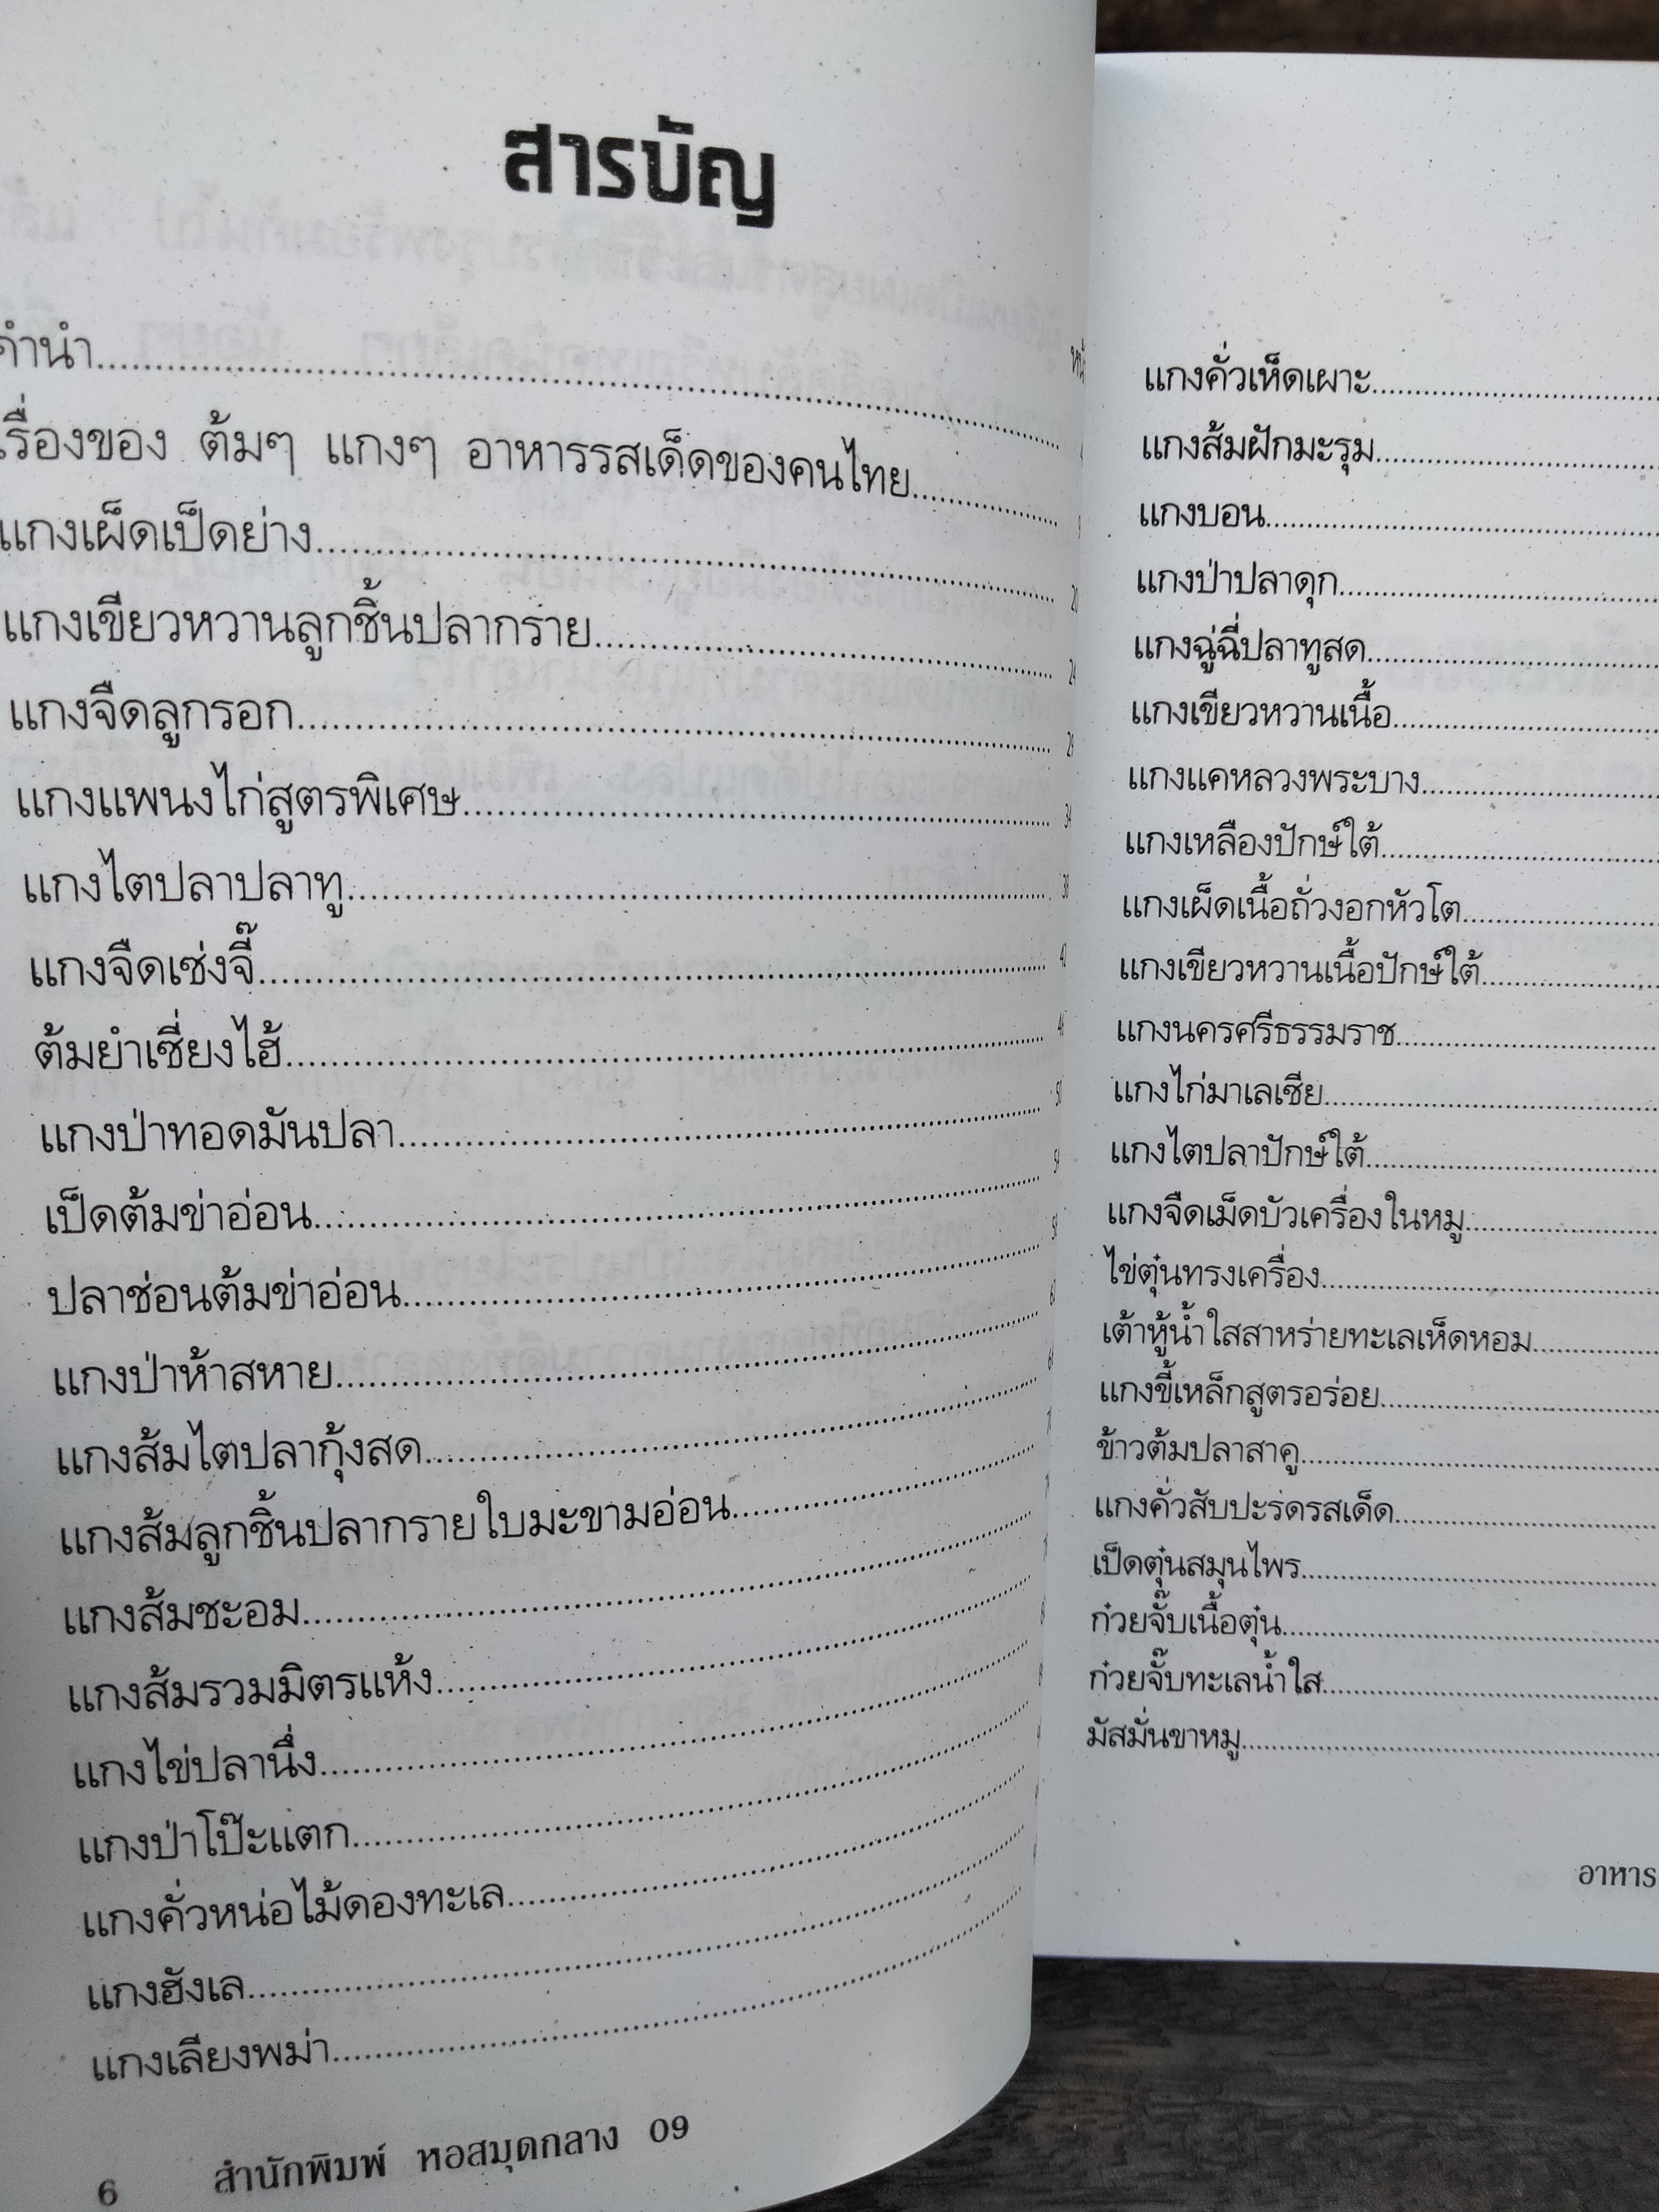 สารบัญ
คำนำ
เรื่องของ ต้มๆ แกงๆ อาหารรสเด็ดของคนไทย
แกงเผ็ดเป็ดย่าง 20
แกงเขียวหวานลูกชิ้นปลากราย 24
แกงจืดลูกรอก 29
แกงแพนงไก่สูตรพิเศษ 34
แกงไตปลาปลาทู 38
แกงจืดเซ่งจี๊ 42
ต้มยำเซี่ยงไฮ้ 46
แกงป่าทอดมันปลา 50
เป็ดต้มข่าอ่อน 54
ปลาช่อนต้มข่าอ่อน
แกงป่าห้าสหาย
แกงส้มไตปลากุ้งสด
แกงส้มลูกชิ้นปลากรายใบมะขามอ่อน
แกงส้มชะอม
แกงส้มรวมมิตรแห้ง
แกงไข่ปลานึ่ง
แกงป่าโป๊ะแตก
แกงคั่วหน่อไม้ดองทะเล
แกงฮังเล
แกงเลียงพม่า
6 สำนักพิมพ์ หอสมุดกลาง 09
แกงคั่วเห็ดเผาะ
แกงส้มฝักมะรุม
แกงบอน
แกงป่าปลาดุก
แกงฉู่ฉี่ปลาทูสด
แกงเขียวหวานเนื้อ
แกงแคหลวงพระบาง
แกงเหลืองปักษ์ใต้
แกงเผ็ดเนื้อถั่วงอกหัวโต
แกงเขียวหวานเนื้อปักษ์ใต้
แกงนครศรีธรรมราช
แกงไก่มาเลเซีย
แกงไตปลาปักษ์ใต้
แกงจืดเม็ดบัวเครื่องในหมู
ไข่ตุ๋นทรงเครื่อง
เต้าหู้น้ำใสสาหร่ายทะเลเห็ดหอม
แกงขี้เหล็กสูตรอร่อย
ข้าวต้มปลาสาคู
แกงคั่วสับปะรดรสเด็ด
เป็ดตุ๋นสมุนไพร
ก๋วยจั๊บเนื้อตุ๋น
ก๋วยจั๊บทะเลน้ำใส
มัสมั่นขาหมู
อาหาร